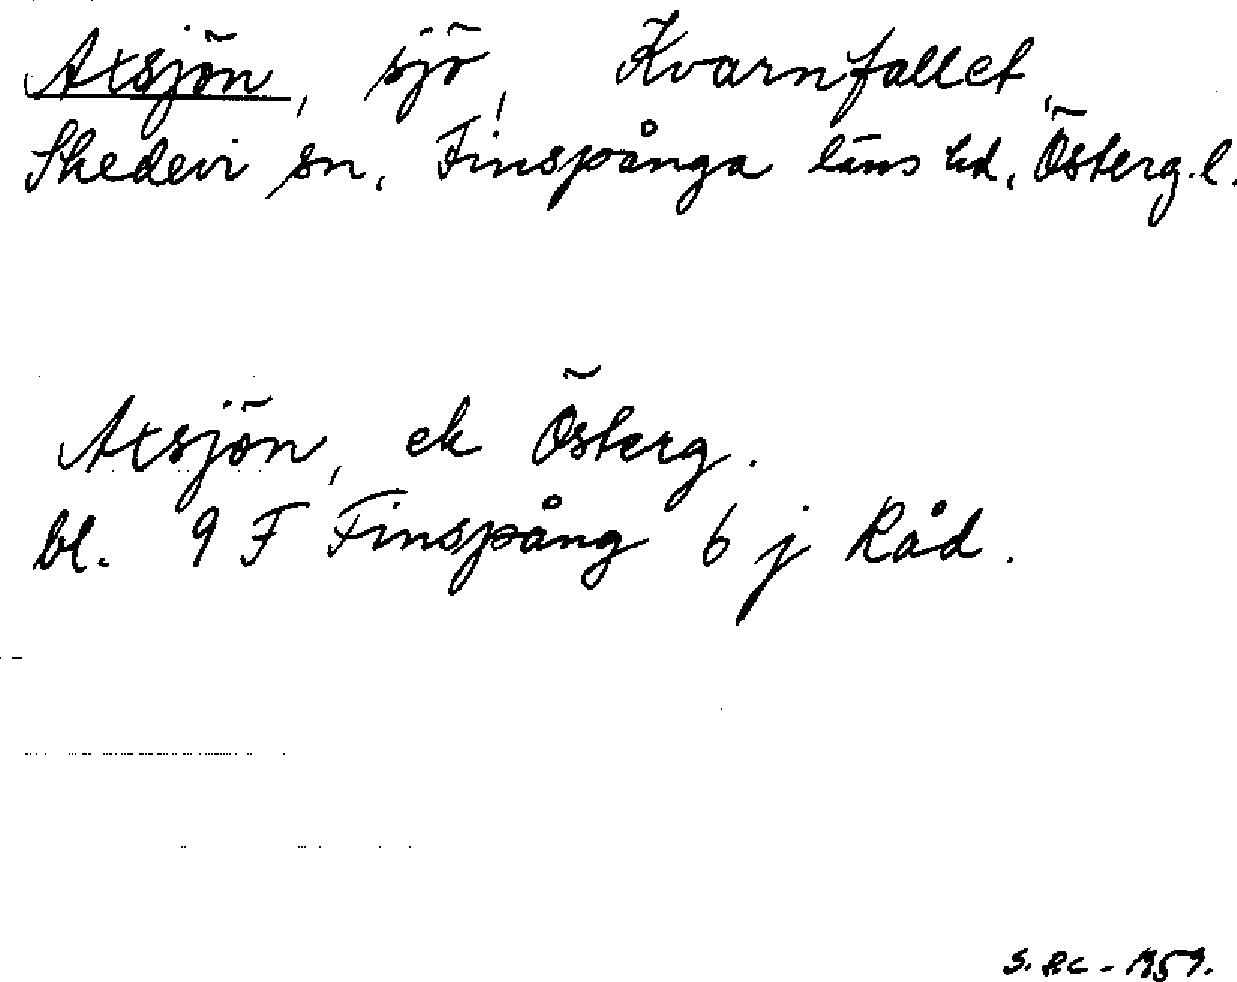 Axsjön, sjö, Kvarnfallet,
Skedevi sn, Finspånga läns hd, Österg. l.
Axsjön, ek Österg.
bl. 9 F Finspång 6 j Råd.
1959.